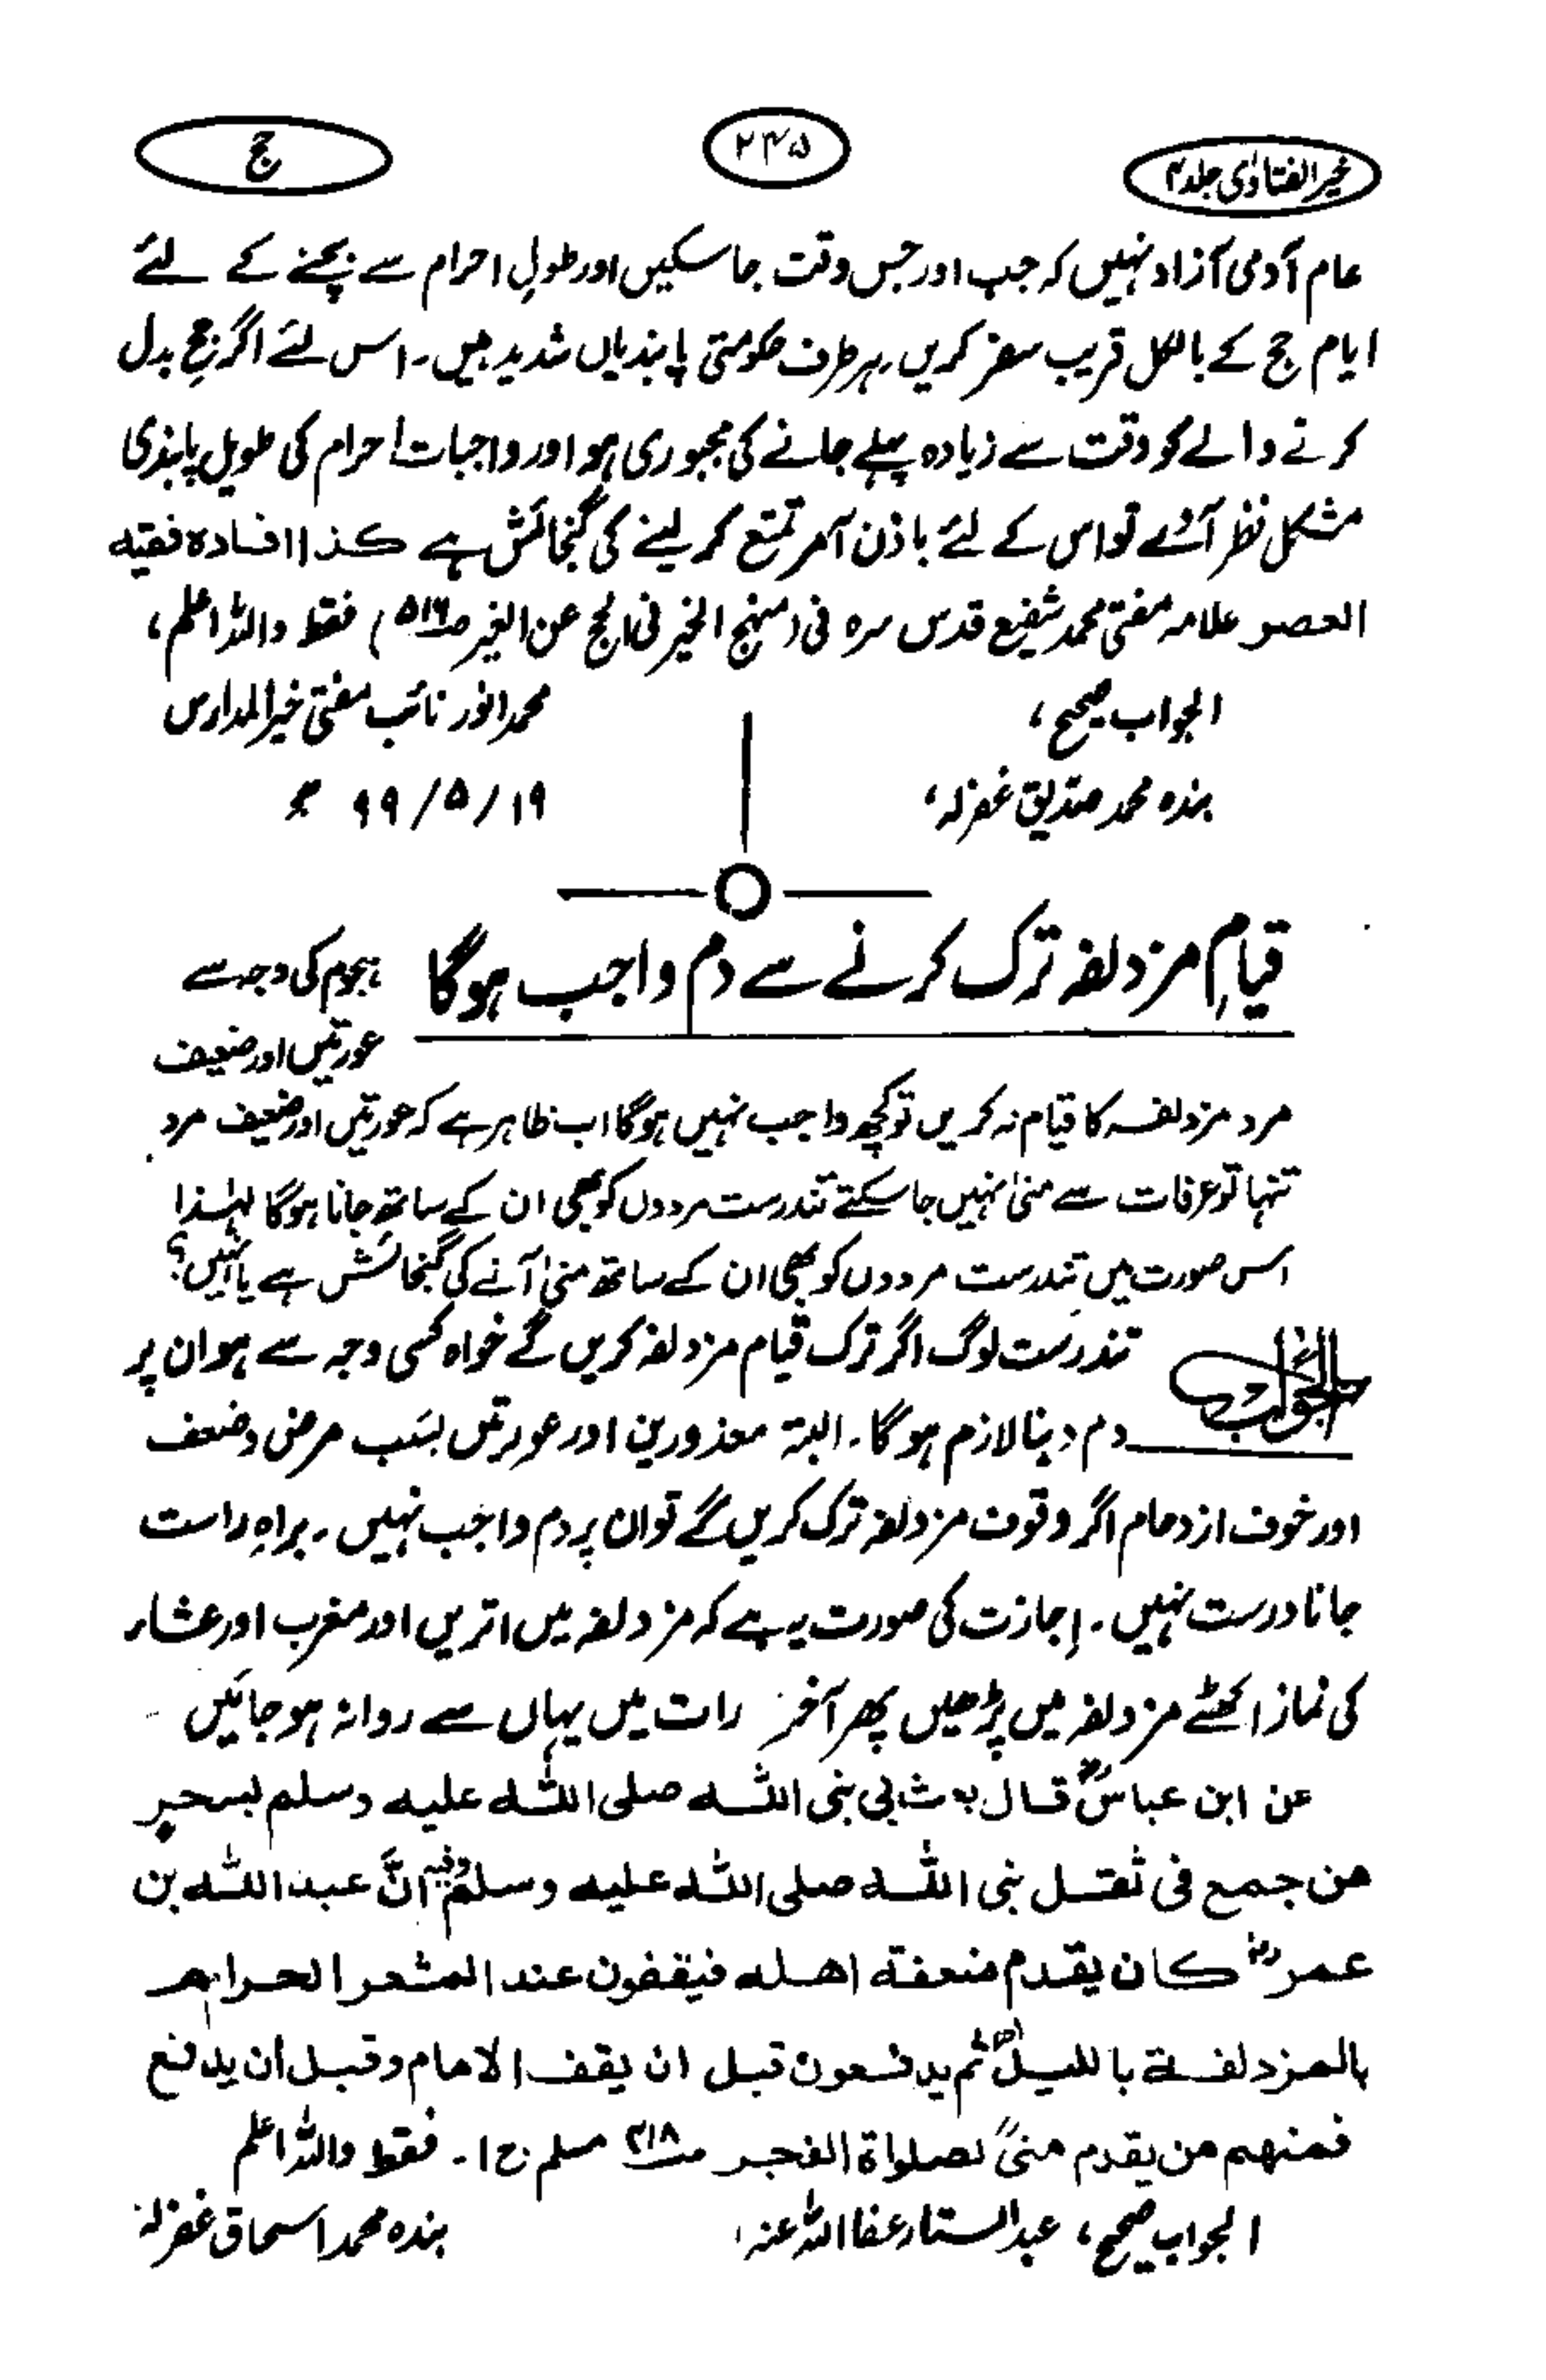 خیر الفتاویٰ جلد ۴
۲۴۵
حج
عام آدمی آزاد نہیں کہ جب اور جس وقت جا سکیں اور طولِ احرام سے بچنے کے لئے
ایام حج کے بالکل قریب سفر کریں ۔ ہر طرف حکومتی پابندیاں شدید ہیں ۔ اس لئے اگر حجِ بدل
کرنے والے کو وقت سے زیادہ پہلے جانے کی مجبوری ہو اور واجبات احرام کی طویل پابندی
مشکل نظر آئے تو اس کے لئے باذن آمر تمتع کر لینے کی گنجائش ہے کذا افادہ فقیہ
العصر علامہ مفتی محمد شفیع قدس سرہ فی (منہج الخیر فی الحج عن الغیر ص۵۱۶) فقط واللہ اعلم ،
الجواب صحیح ،
محمد انور نائب مفتی خیر المدارس
بندہ محمد صدیق غفرلہ ،
۱۹ / ۵ / ۹۹ ھ
قیامِ مزدلفہ ترک کرنے سے دم واجب ہوگا
ہجوم کی وجہ سے
عورتیں اور ضعیف
مرد مزدلفہ کا قیام نہ کریں تو کچھ واجب نہیں ہوگا اب ظاہر ہے کہ عورتیں اور ضعیف مرد
تنہا تو عرفات سے منیٰ نہیں جا سکتے تندرست مردوں کو بھی ان کے ساتھ جانا ہوگا لہٰذا
اس صورت میں تندرست مردوں کو بھی ان کے ساتھ منیٰ آنے کی گنجائش ہے یا نہیں ؟
الجواب
تندرست لوگ اگر ترک قیام مزدلفہ کریں گے خواہ کسی وجہ سے ہو ان پر
دم دینا لازم ہوگا ۔ البتہ معذورین اور عورتیں بسبب مرض و ضعف
اور خوف ازدحام اگر وقوف مزدلفہ ترک کریں گے تو ان پر دم واجب نہیں ۔ براہِ راست
جانا درست نہیں ۔ اجازت کی صورت یہ ہے کہ مزدلفہ میں اتریں اور مغرب اور عشاء
کی نماز اکٹھے مزدلفہ میں پڑھیں پھر آخر رات میں یہاں سے روانہ ہو جائیں ۔
عن ابن عباسؓ قال بعث بی نبی اللہ صلی اللہ علیہ وسلم بسحر
من جمع فی ثقل نبی اللہ صلی اللہ علیہ وسلم وفیہ انَّ عبد اللہ بن
عمرؓ کان یقدم ضعفة اھلہ فیقفون عند المشعر الحرام
بالمزدلفة باللیل ثم یدفعون قبل ان یقف الامام وقبل ان یدفع
فمنھم من یقدم منیً لصلواة الفجر ص۴۱۸ مسلم ج۱ ۔ فقط واللہ اعلم
الجواب صحیح ، عبد الستار عفا اللہ عنہ ،
بندہ محمد اسحاق غفرلہٗ